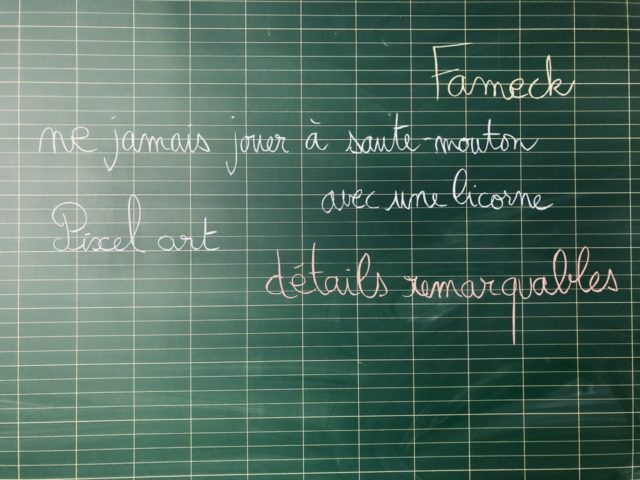 Fameck
ne jamais jouer à saute-mouton
avec une licorne
Pixel art
détails remarquables